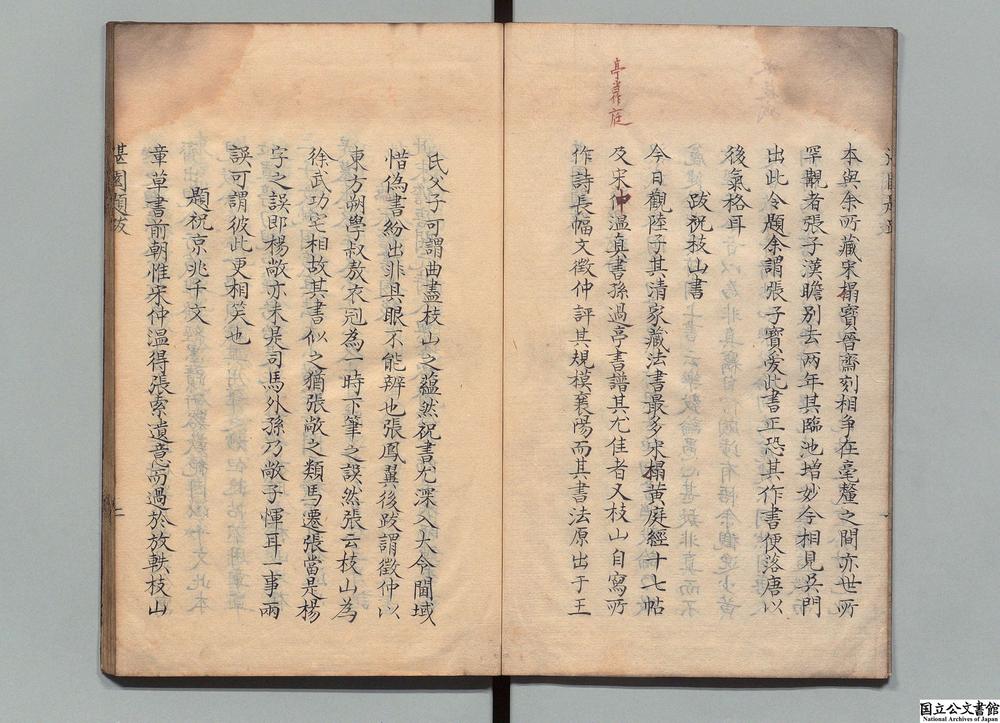 本與余所藏宋搨寶晉齋刻相争在毫釐之間亦世所
罕觀者張子漢瞻别去兩年其臨池增妙今相見吳門
出此令題余謂張子寶愛此書正恐其作書便落唐以
後氣格耳
跋祝枝山書
今日觀陸子其清家藏法書最多宋搨黄庭經十七帖
及宋仲溫真書孫過亭書譜其尤佳者又枝山自寫所
亭當作庭
作詩長幅文徵仲評其規模襄陽而其書法原出于王
氏父子可謂曲盡枝山之蘊然祝書尤深入大令閫域
惜偽書紛出非具眼不能辨也張鳳翼後跋謂徵仲以
東方朔學叔敖衣冠為一時下筆之誤然張云枝山為
徐武功宅相故其書似之猶張敞之類馬遷張當是楊
字之誤即楊敞亦未是司馬外孫乃敞子惲耳一事兩
誤可謂彼此更相笑也
題祝京兆千文
章草書前朝惟宋仲溫得張索遺意而過於放軼枝山
湛園題跋
國立公文書館
National Archives of Japan